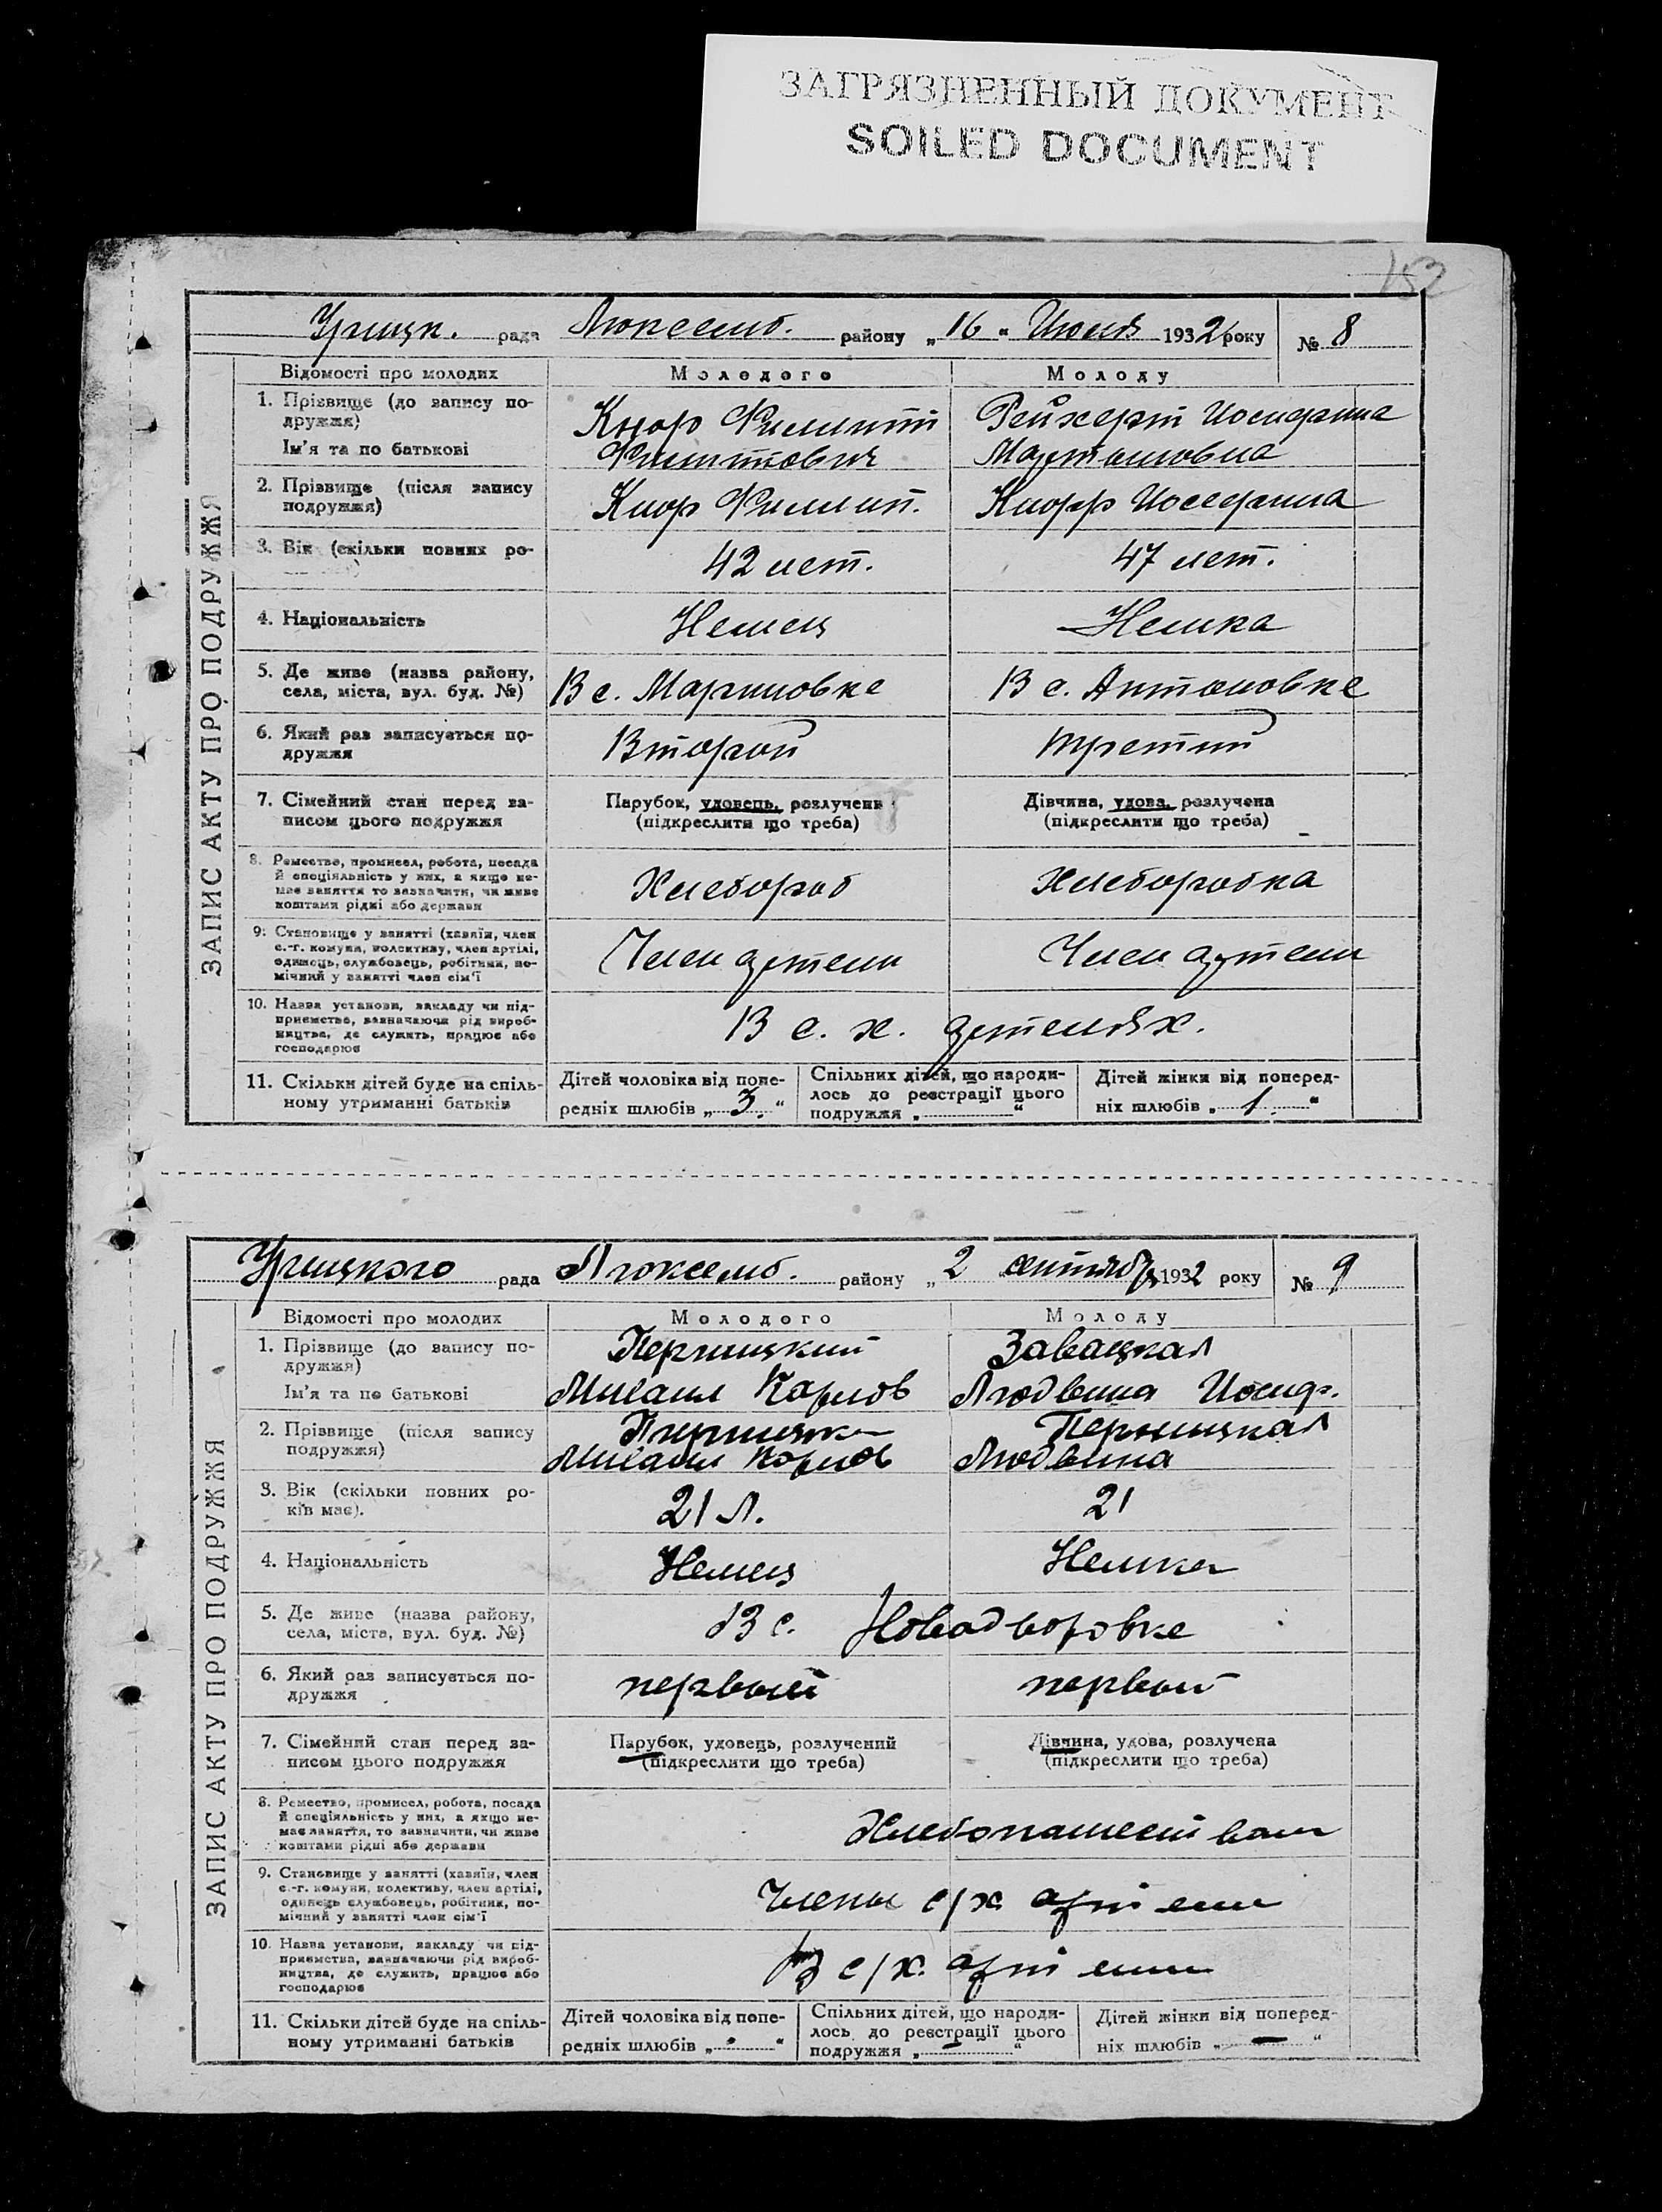 ЗАГРЯЗНЕННЫЙ ДОКУМЕНТ
SOILED DOCUMENT
152
Урицк. рада Люксемб. району „16“ Июля 1932 року № 8
ЗАПИС АКТУ ПРО ПОДРУЖЖЯ
Відомості про молодих Молодого Молоду
1. Прізвище (до запису по-
дружжя)
Ім'я та по батькові
Кнор Филипп
Филиппович
Рейхерт Иосифина
Мартыновна
2. Прізвище (після запису
подружжя)
Кнор Филлип.
Кнорр Иосефина
3. Вік (скільки повних ро-
42 лет.
47 лет.
4. Національність
Немец
Немка
5. Де живе (назва району,
села, міста, вул. буд. №)
В с. Марьиновке
В с. Антоновке
6. Який раз записується по-
дружжя
Второй
третий
7. Сімейний стан перед за-
писом цього подружжя
Парубок, удовець, розлучени
(підкреслити що треба)
Дівчина, удова, розлучена
(підкреслити що треба)
8. Ремество, промисел, робота, посада
й спеціяльність у них, а якщо не-
має заняття то зазначити, чи живе
коштами рідні або держави
Хлебороб
Хлеборобка
9. Становище у занятті (хазяїн, член
с.-г. комуни, колективу, член артілі,
одинець, службовець, робітник, по-
мічний у занятті член сім'ї
Член артели
Член артели
10. Назва установи, закладу чи під-
приємства, зазначаючи рід вироб-
ництва, де служить, працює або
господарює
В с. х. артелях.
11. Скільки дітей буде на спіль-
ному утриманні батьків
Дітей чоловіка від попе-
редніх шлюбів „ 3. “
Спільних дітей, що народи-
лось до реєстрації цього
подружжя „ “
Дітей жінки від поперед-
ніх шлюбів „ 1. “
Урицкого рада Люксемб. району „2 сентября 1932 року № 9
ЗАПИС АКТУ ПРО ПОДРУЖЖЯ
Відомості про молодих Молодого Молоду
1. Прізвище (до запису по-
дружжя)
Ім'я та по батькові
Перницкий
Михаил Карлов
Завацкая
Людвина Иосиф.
2. Прізвище (після запису
подружжя)
Михаил Карлов
Перницкая
Людвина
3. Вік (скільки повних ро-
ків має).
21 л.
21
4. Національність
Немец
Немка
5. Де живе (назва району,
села, міста, вул. буд. №)
В с. Новадворовке
6. Який раз записується по-
дружжя
первый
первый
7. Сімейний стан перед за-
писом цього подружжя
Парубок, удовець, розлучений
(підкреслити що треба)
Дівчина, удова, розлучена
(підкреслити що треба)
8. Ремество, промисел, робота, посада
й спеціяльність у них, а якщо не-
має заняття, то зазначити, чи живе
коштами рідні або держави
9. Становище у занятті (хазяїн, член
с.-г. комуни, колективу, член артілі,
одинець службовець, робітник, по-
мічний у занятті член сім'ї
Члены с/х артели
10. Назва установи, закладу чи під-
приємства, зазначаючи рід вироб-
ництва, де служить, працює або
господарює
В с/х. артели
11. Скільки дітей буде на спіль-
ному утриманні батьків
Дітей чоловіка від попе-
редніх шлюбів „ - “
Спільних дітей, що народи-
лось до реєстрації цього
подружжя „ - “
Дітей жінки від поперед-
ніх шлюбів „ - “